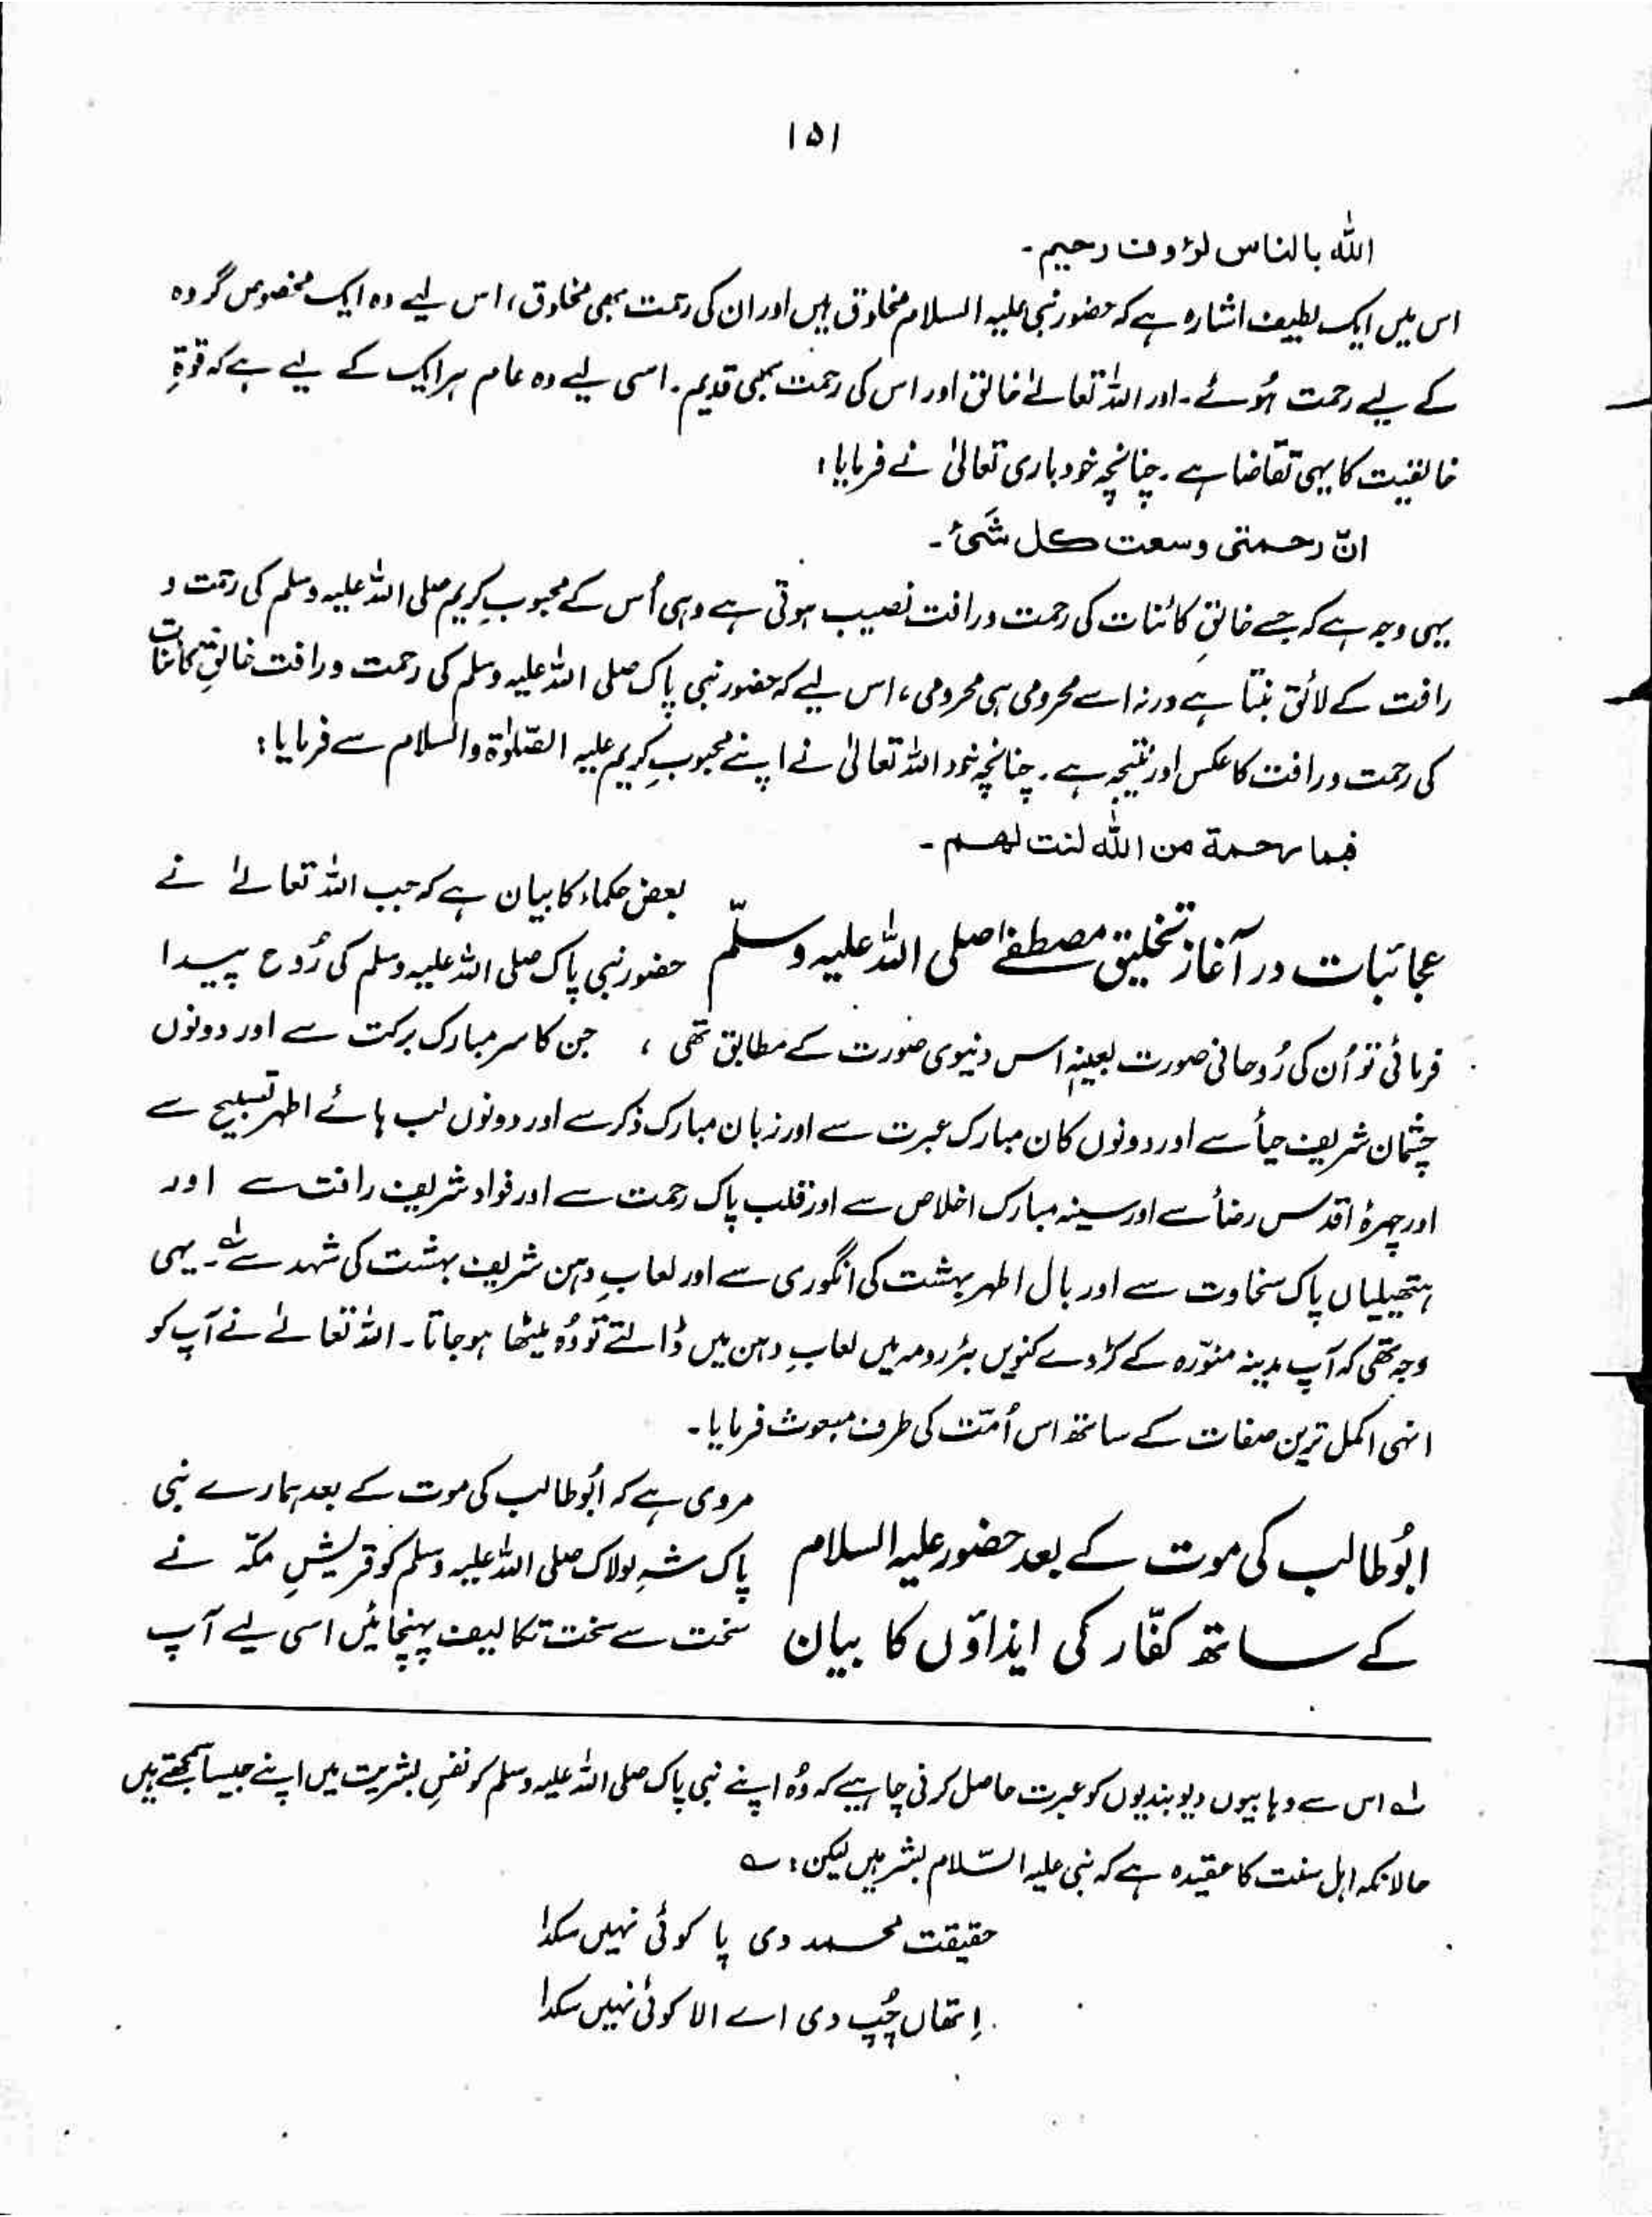 ۱۵۱
اللہ بالناس لرؤوف رحیم۔
اس میں ایک لطیف اشارہ ہے کہ حضور نبی علیہ السلام مخلوق ہیں اور ان کی رحمت بھی مخلوق، اس لیے وہ ایک مخصوص گروہ
کے لیے رحمت ہُوئے۔ اور اللہ تعالےٰ خالق اور اس کی رحمت بھی قدیم۔ اسی لیے وہ عام ہر ایک کے لیے ہے کہ قوۃِ
خالقیت کا یہی تقاضا ہے۔ چنانچہ خود باری تعالیٰ نے فرمایا:
انّ رحمتی وسعت کل شَیْء۔
یہی وجہ ہے کہ جسے خالقِ کائنات کی رحمت و رافت نصیب ہوتی ہے وہی اُس کے محبوبِ کریم صلی اللہ علیہ وسلم کی رحمت و
رافت کے لائق بنتا ہے ورنہ اسے محرومی ہی محرومی، اس لیے کہ حضور نبی پاک صلی اللہ علیہ وسلم کی رحمت و رافت خالقِ کائنات
کی رحمت و رافت کا عکس اور نتیجہ ہے۔ چنانچہ خود اللہ تعالیٰ نے اپنے محبوبِ کریم علیہ الصّلوٰۃ والسلام سے فرمایا:
فبما رحمة من اللہ لنت لھم۔
عجائبات در آغاز تخلیق مصطفےٰ صلی اللہ علیہ وسلّم
بعض حکماء کا بیان ہے کہ جب اللہ تعالےٰ نے
حضور نبی پاک صلی اللہ علیہ وسلم کی رُوح پیدا
فرمائی تو اُن کی رُوحانی صورت بعینہٖ اس دنیوی صورت کے مطابق تھی ، جن کا سر مبارک برکت سے اور دونوں
چشمان شریف حیأ سے اور دونوں کان مبارک عبرت سے اور زبان مبارک ذکر سے اور دونوں لب ہائے اطہر تسبیح سے
اور چہرۂ اقدس رضأ سے اور سینہ مبارک اخلاص سے اور قلب پاک رحمت سے اور فواد شریف رافت سے اور
ہتھیلیاں پاک سخاوت سے اور بال اطہر بہشت کی انگوری سے اور لعابِ دہن شریف بہشت کی شہد سے لہ۔ یہی
وجہ تھی کہ آپ مدینہ منوّرہ کے کڑوے کنویں بئر رومہ میں لعابِ دہن میں ڈالتے تو وُہ میٹھا ہو جاتا۔ اللہ تعالےٰ نے آپ کو
انہی اکمل ترین صفات کے ساتھ اس اُمّت کی طرف مبعوث فرمایا۔
ابُوطالب کی موت کے بعد حضور علیہ السلام
کے ساتھ کفّار کی ایذاؤں کا بیان
مروی ہے کہ ابُوطالب کی موت کے بعد ہمارے نبی
پاک شہِ لولاک صلی اللہ علیہ وسلم کو قریشِ مکّہ نے
سخت سے سخت تکالیف پہنچائیں اسی لیے آپ
لہ اس سے وہابیوں دیوبندیوں کو عبرت حاصل کرنی چاہیے کہ وُہ اپنے نبی پاک صلی اللہ علیہ وسلم کو نفسِ بشریت میں اپنے جیسا سمجھتے ہیں
حالانکہ اہل سنت کا عقیدہ ہے کہ نبی علیہ السّلام بشر ہیں لیکن: ؎
حقیقت محمد دی پا کوئی نہیں سکدا
اِتھاں چُپ دی اے الا کوئی نہیں سکدا